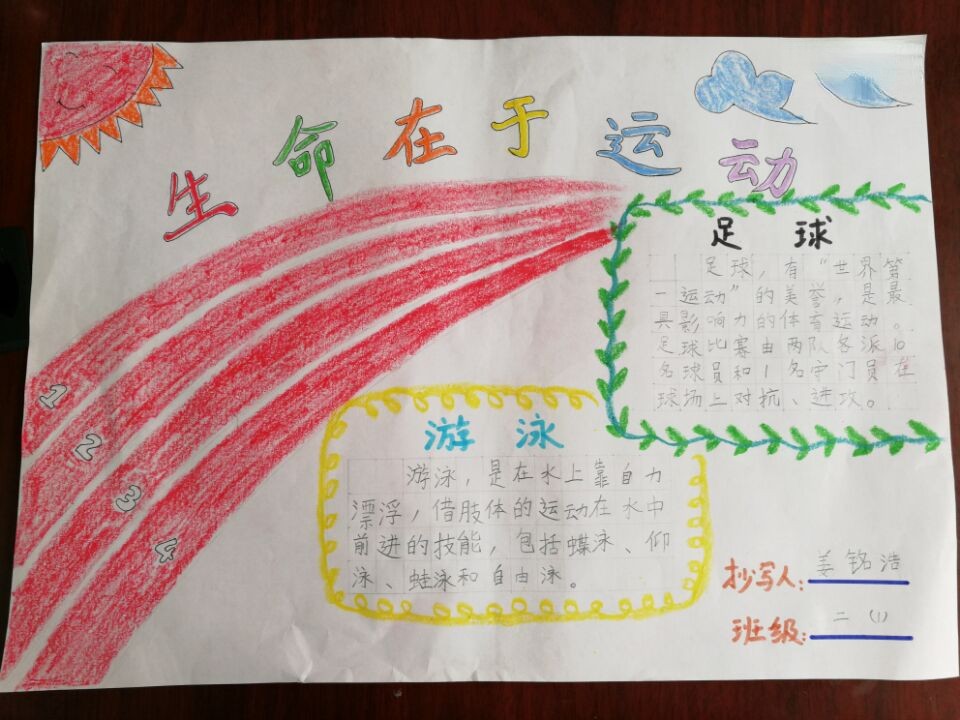 生命在于运动
足球
足球，有“世界第
一运动”的美誉，是最
具影响力的体育运动。
足球比赛由两队各派10
名球员和1名守门员在
球场上对抗、进攻。
1
2
3
4
游泳
游泳，是在水上靠自力
漂浮，借肢体的运动在水中
前进的技能，包括蝶泳、仰
泳、蛙泳和自由泳。
抄写人：姜铭浩
班级：二（1）